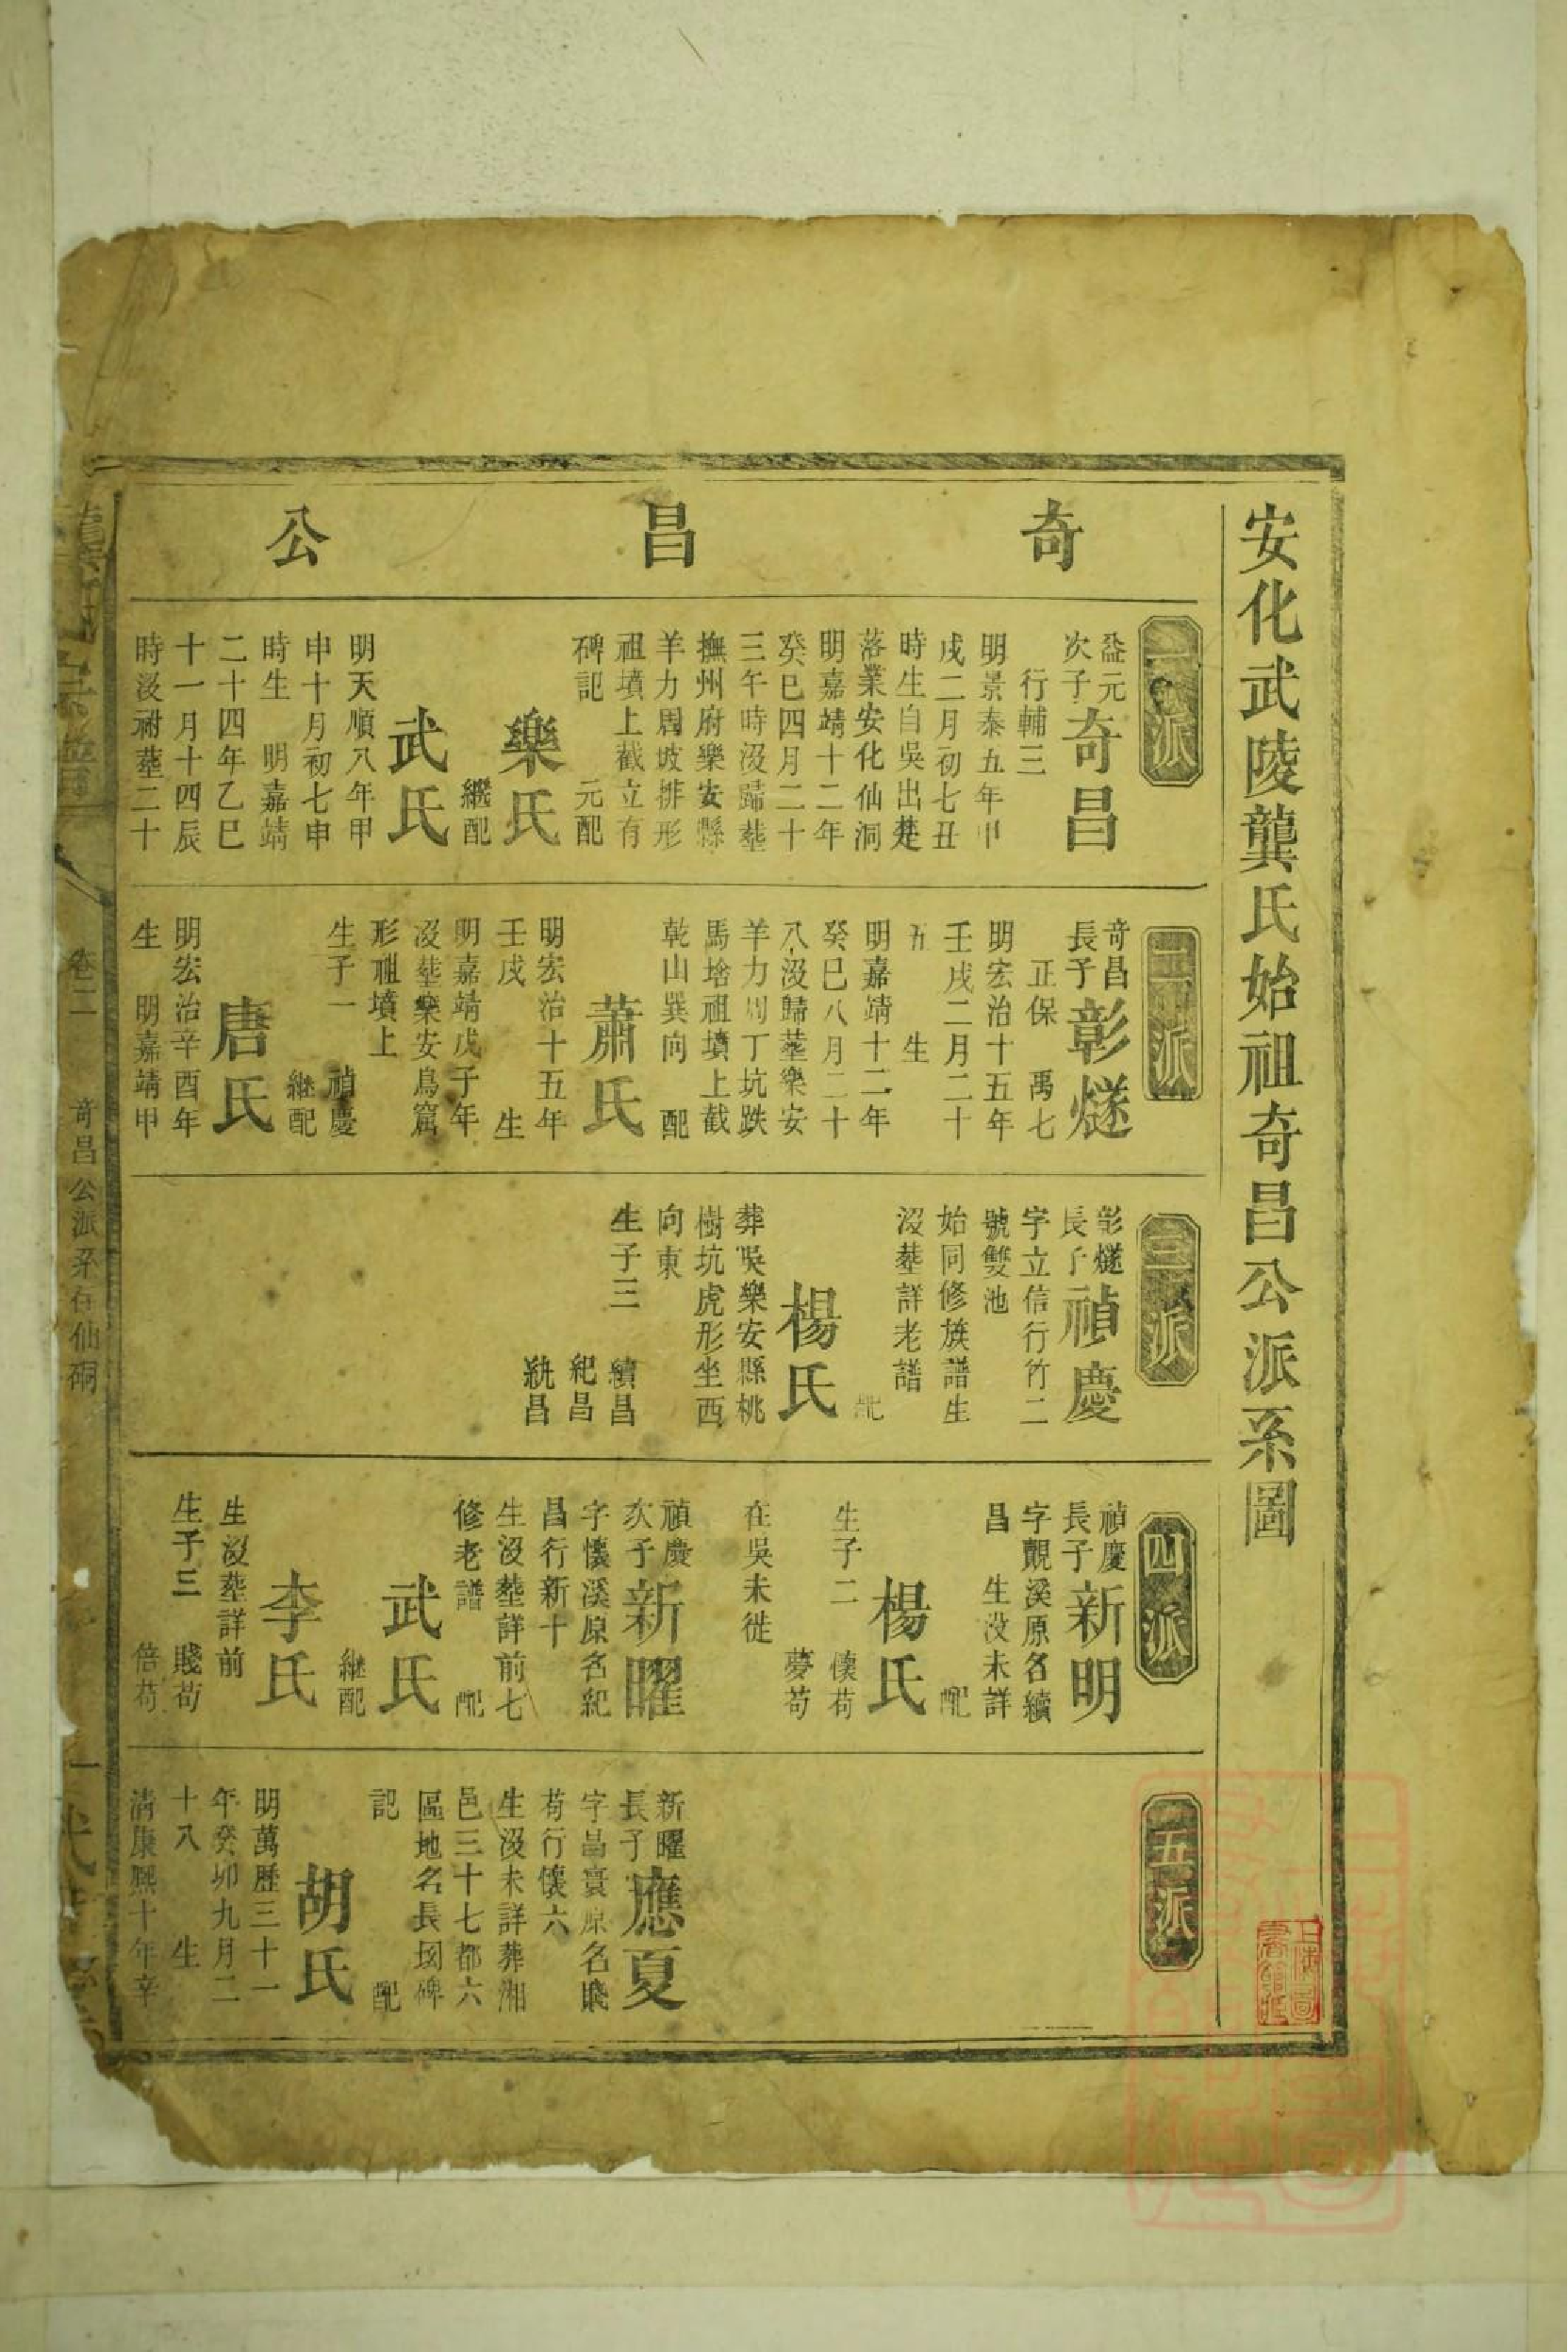 安化武陵龔氏始祖奇昌公派系圖
奇昌公
一派
益元
次子
奇昌
行輔三
明景泰五年甲
戌二月初七丑
時生自吳出楚
落業安化仙洞
明嘉靖十二年
癸巳四月二十
三午時沒歸塟
撫州府樂安縣
羊力周坡排形
祖墳上截立有
碑記 元配
樂氏
繼配
武氏
明天順八年甲
申十月初七申
時生 明嘉靖
二十四年乙巳
十一月十四辰
時沒祔塟二十
二派
奇昌
長子
彰燧
正保 禹七
明宏治十五年
壬戌二月二十
五 生
明嘉靖十二年
癸巳八月二十
八沒歸塟樂安
羊力周丁坑跌
馬墖祖墳上截
乾山巽向 配
蕭氏
明宏治十五年
壬戌 生
明嘉靖戊子年
沒塟樂安鳥窩
形祖墳上
生子一 禎慶
繼配
唐氏
明宏治辛酉年
生 明嘉靖甲
三派
彰燧
長子
禎慶
字立信行竹二
號雙池
始同修族譜生
沒塟詳老譜
配
楊氏
葬吳樂安縣桃
樹坑虎形坐西
向東
生子三 續昌
紀昌
統昌
四派
禎慶
長子
新明
字觀溪原名續
昌 生没未詳
配
楊氏
生子二 懷苟
夢苟
在吳未徙
禎慶
次子
新曜
字懷溪原名紀
昌行新十
生沒塟詳前七
修老譜 配
武氏
繼配
李氏
生沒塟詳前
生子三 賤苟
倍苟
五派
新曜
長子
應夏
字昌寰原名賤
苟行懷六
生沒未詳葬湘
邑三十七都六
區地名長圽碑
記 配
胡氏
明萬歷三十一
年癸卯九月二
十八 生
清康熙十年辛
卷二
奇昌公派系在仙硐